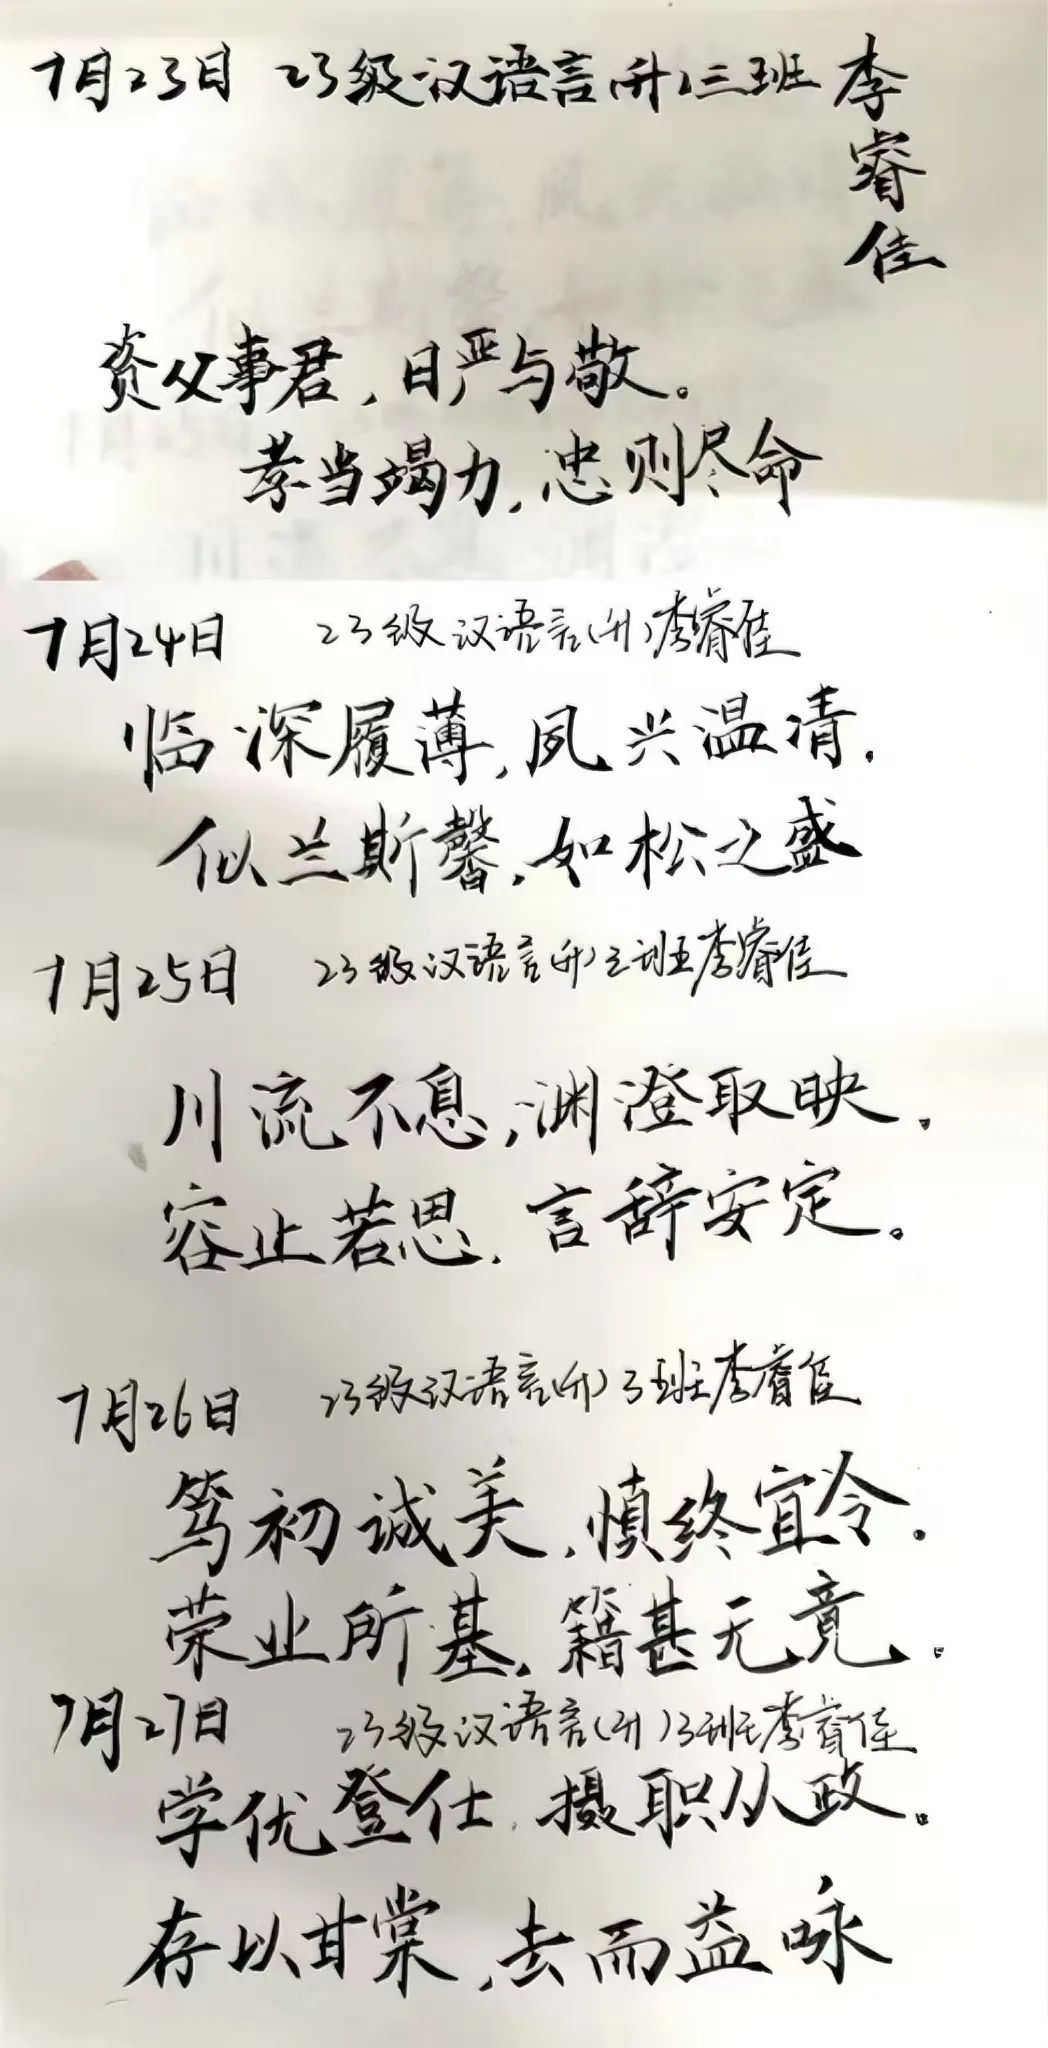 7月23日 23级汉语言(升)三班李睿佳
资父事君，日严与敬。
孝当竭力，忠则尽命
7月24日 23级汉语言(升)李睿佳
临深履薄，夙兴温清.
似兰斯馨，如松之盛
7月25日 23级汉语言(升)三班李睿佳
川流不息，渊澄取映.
容止若思.言辞安定。
7月26日 23级汉语言(升)3班李睿佳
笃初诚美，慎终宜令.
荣业所基，籍甚无竟.
7月27日 23级汉语言(升)3班李睿佳
学优登仕.摄职从政。
存以甘棠，去而益咏